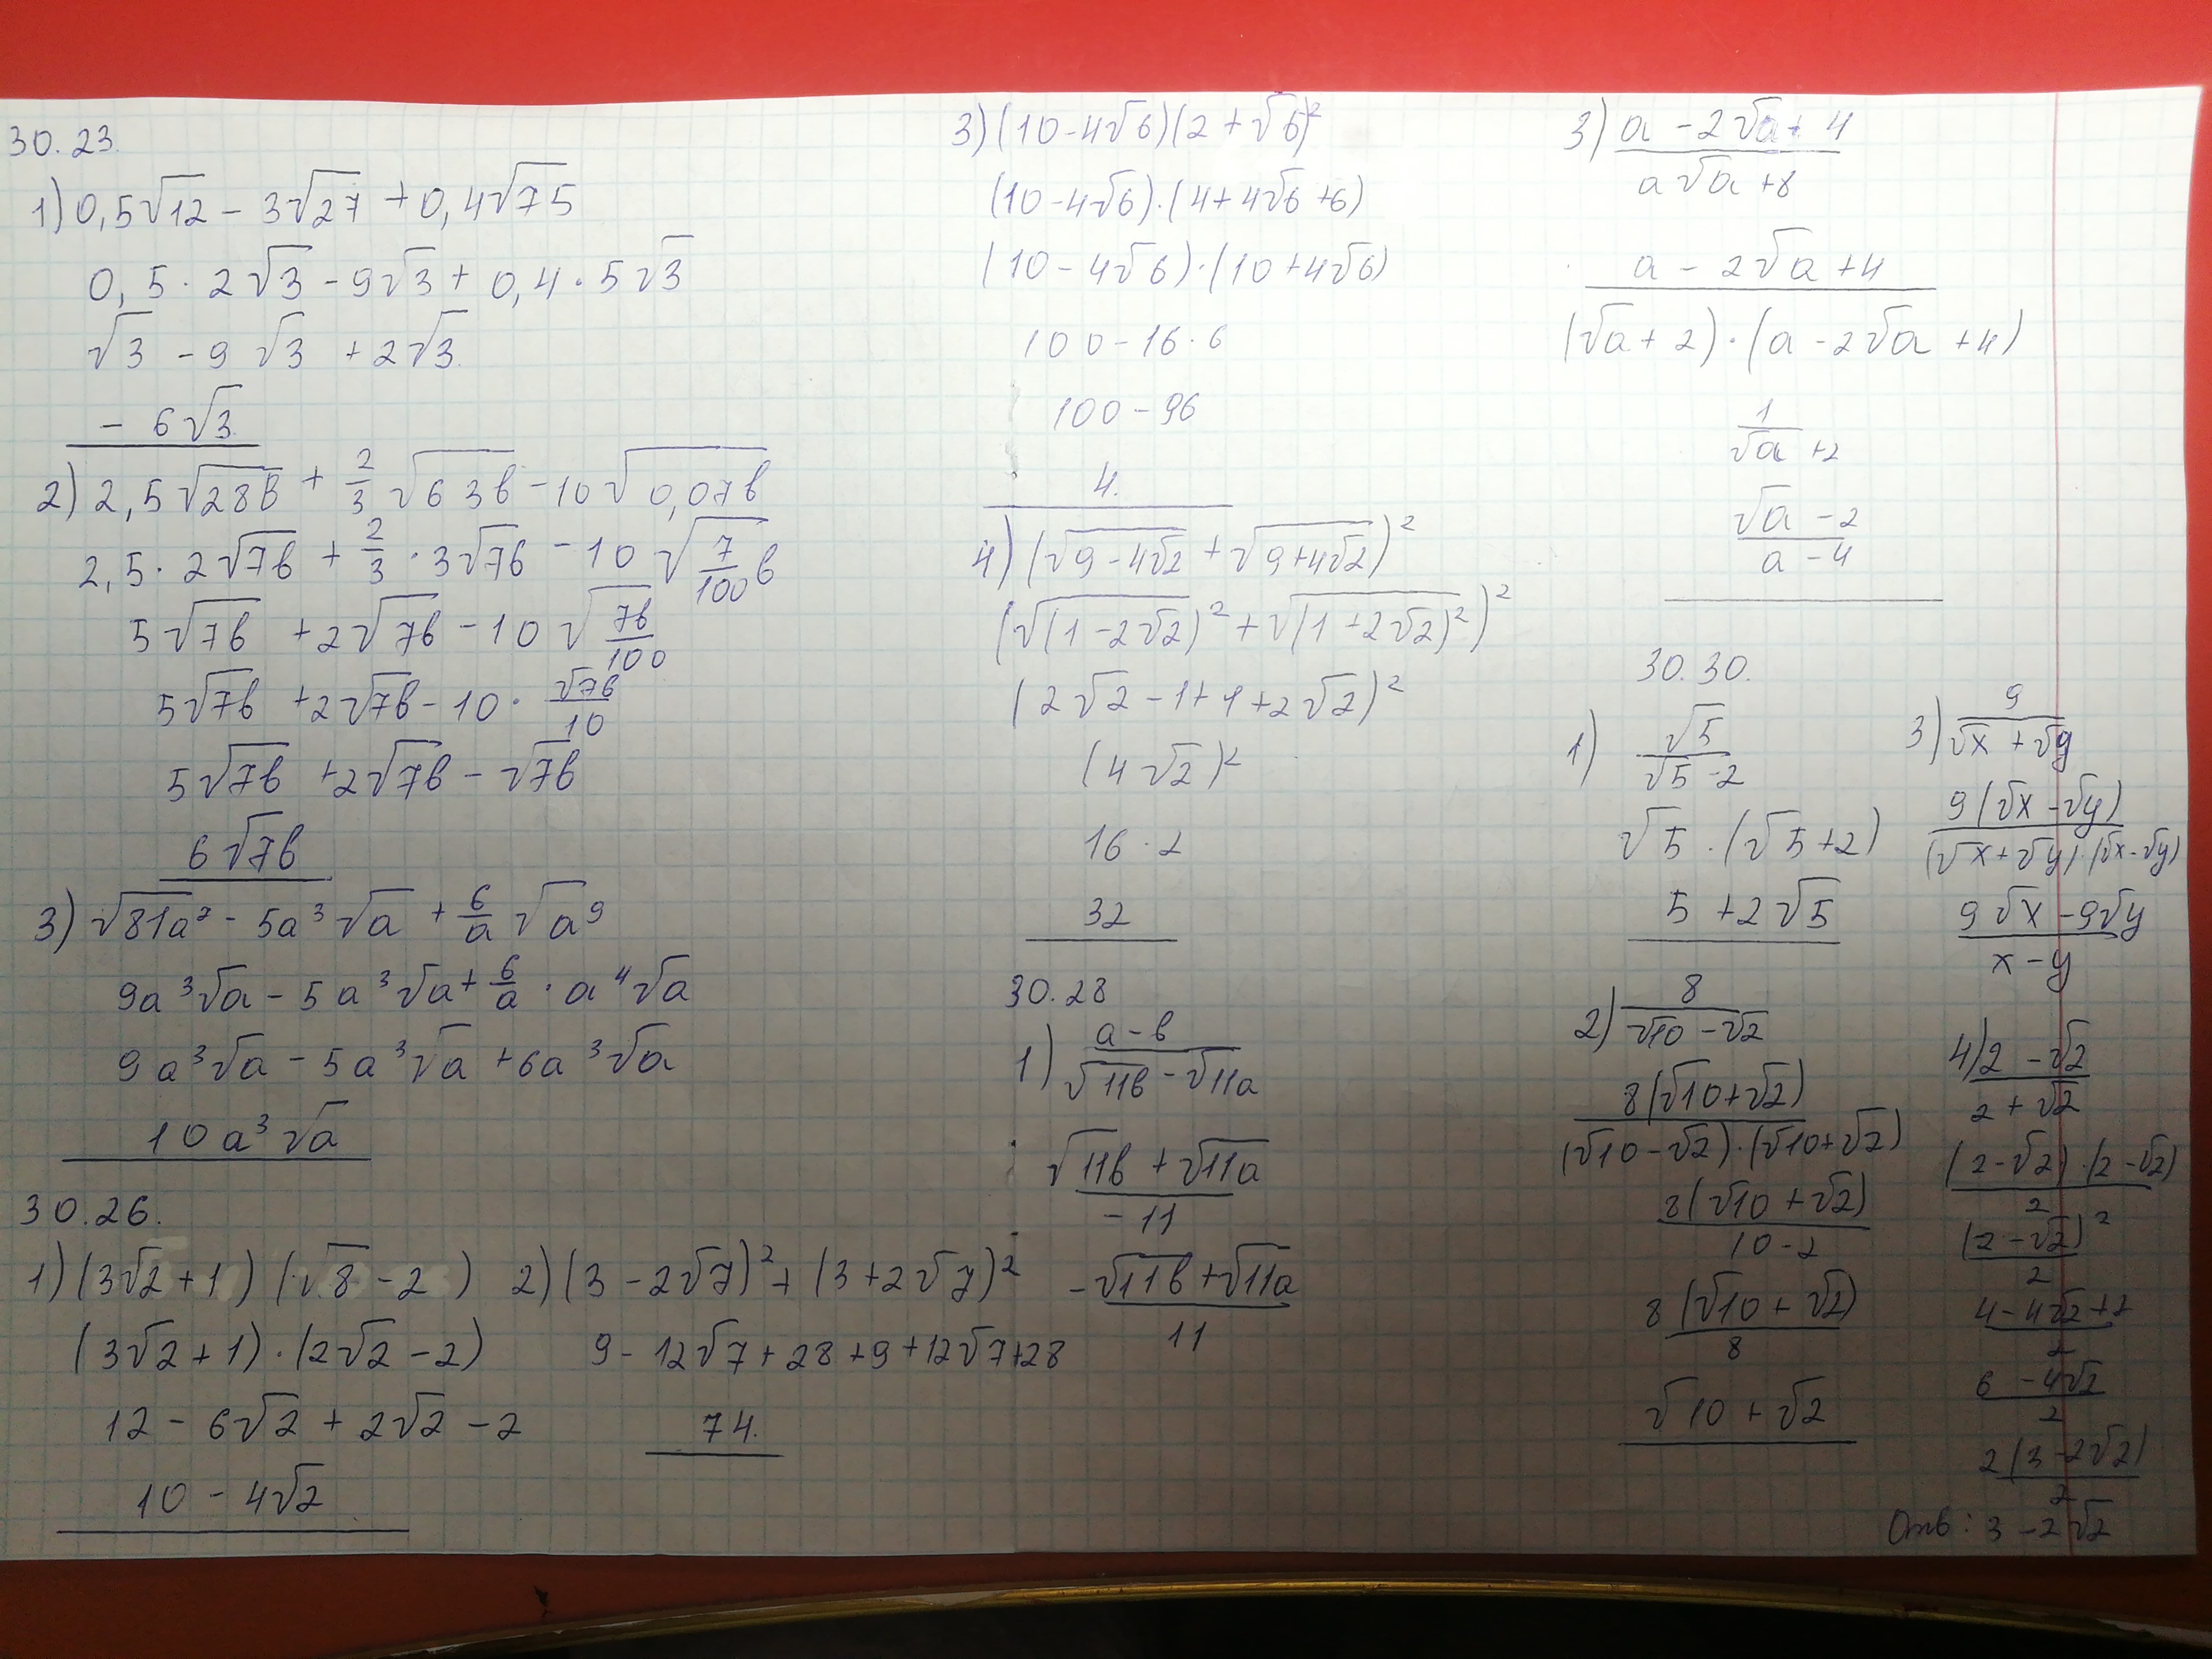 30.23.
1) 0,5√12 - 3√27 + 0,4√75
0,5 · 2√3 - 9√3 + 0,4 · 5√3
√3 - 9√3 + 2√3
- 6√3
2) 2,5√28в + 2/3 √63в - 10√0,07в
2,5 · 2√7в + 2/3 · 3√7в - 10√(7/100 в)
5√7в + 2√7в - 10√(7в/100)
5√7в + 2√7в - 10 · √7в/10
5√7в + 2√7в - √7в
6√7в
3) √81a⁷ - 5a³√a + 6/a √a⁹
9a³√a - 5a³√a + 6/a · a⁴√a
9a³√a - 5a³√a + 6a³√a
10a³√a
30.26.
1) (3√2 + 1) (√8 - 2)
(3√2 + 1) · (2√2 - 2)
12 - 6√2 + 2√2 - 2
10 - 4√2
2) (3 - 2√7)² + (3 + 2√7)²
9 - 12√7 + 28 + 9 + 12√7 + 28
74.
3) (10 - 4√6)(2 + √6)²
(10 - 4√6) · (4 + 4√6 + 6)
(10 - 4√6) · (10 + 4√6)
100 - 16 · 6
100 - 96
4.
4) (√(9 - 4√2) + √(9 + 4√2))²
(√(1 - 2√2)² + √(1 + 2√2)²)²
(2√2 - 1 + 1 + 2√2)²
(4√2)²
16 · 2
32
30.28
1) (a - в)/(√11в - √11a)
(√11в + √11a)/(-11)
-(√11в + √11a)/11
3) (a - 2√a + 4)/(a√a + 8)
(a - 2√a + 4)/((√a + 2) · (a - 2√a + 4))
1/(√a + 2)
(√a - 2)/(a - 4)
30.30.
1) √5/(√5 - 2)
√5 · (√5 + 2)
5 + 2√5
2) 8/(√10 - √2)
8(√10 + √2)/((√10 - √2) · (√10 + √2))
8(√10 + √2)/(10 - 2)
8(√10 + √2)/8
√10 + √2
3) 9/(√x + √y)
9(√x - √y)/((√x + √y) · (√x - √y))
(9√x - 9√y)/(x - y)
4) (2 - √2)/(2 + √2)
(2 - √2) · (2 - √2)/2
(2 - √2)²/2
(4 - 4√2 + 2)/2
(6 - 4√2)/2
2(3 - 2√2)/2
Отв: 3 - 2√2